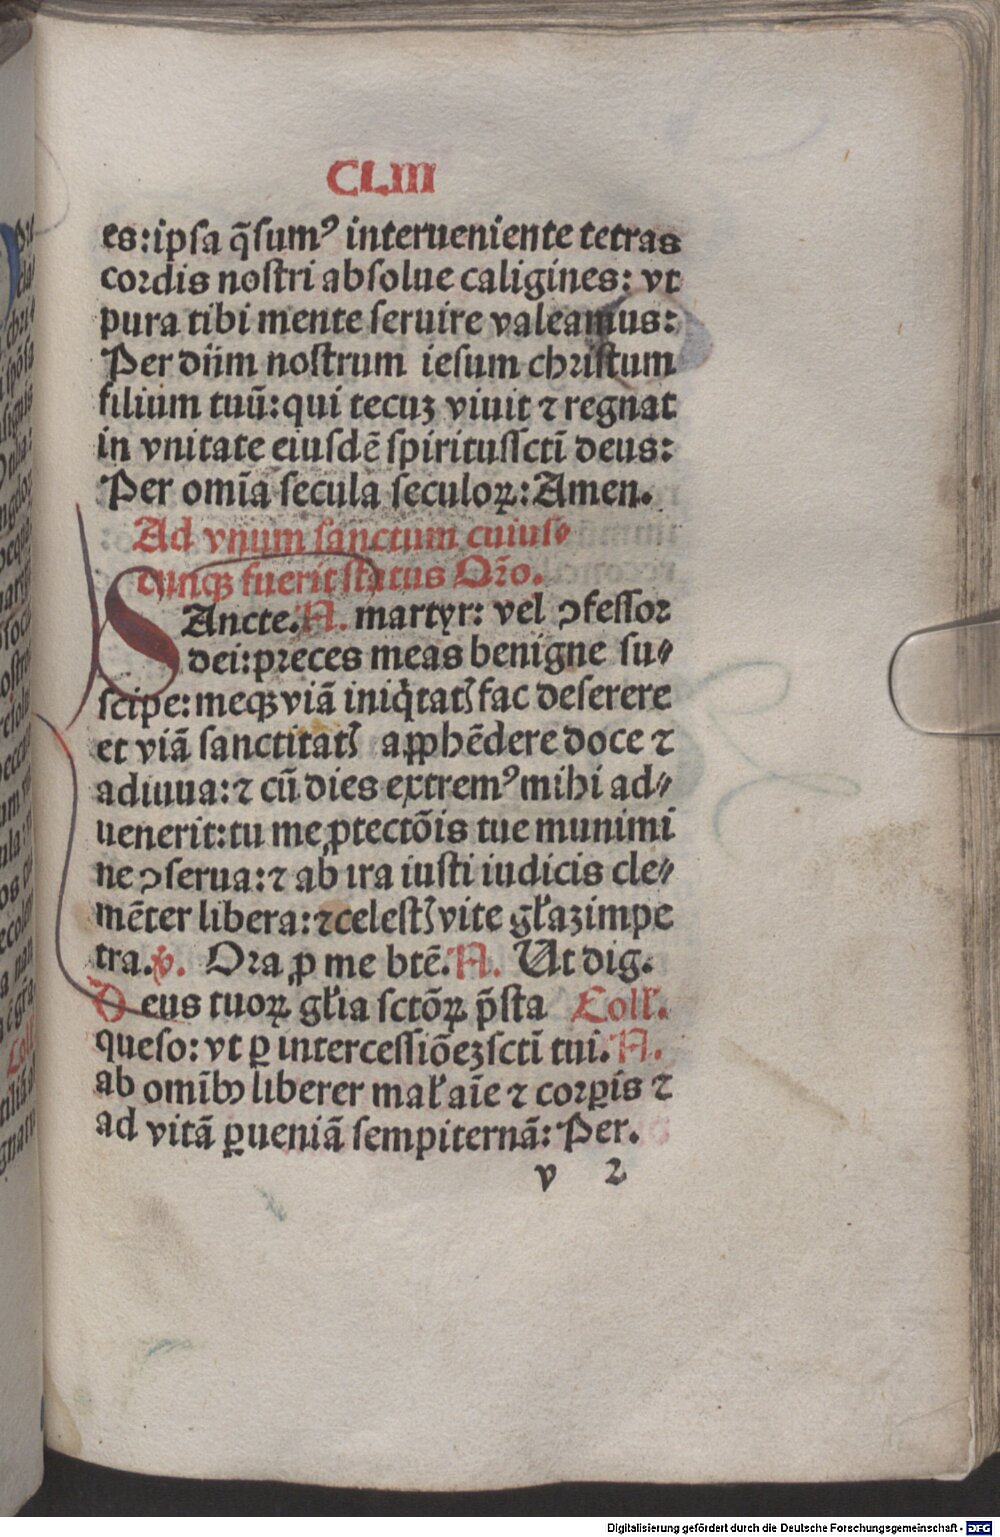 CLIII
es: ipsa q̃sumꝰ interueniente tetras
cordis nostri absolue caligines: vt
pura tibi mente seruire valeamus:
Per dñm nostrum iesum christum
filium tuũ: qui tecuʒ viuit ⁊ regnat
in vnitate eiusdẽ spiritussctĩ deus:
Per omĩa secula seculoꝝ: Amen.
Ad vnum sanctum cuius⸗
cunqꝫ fuerit status Or̃o.
SAncte. N. martyr: vel ꝯfessor
dei: preces meas benigne su⸗
scipe: meqꝫ viã iniq̇tatꝭ fac deserere
et viã sanctitatꝭ apphẽdere doce ⁊
adiuua: ⁊ cũ dies extremꝰ mihi ad⸗
uenerit: tu me ꝓtectõis tue munimi
ne ꝯserua: ⁊ ab ira iusti iudicis cle⸗
mẽter libera: ⁊ celestꝭ vite gl̃aʒ impe
tra. ℣. Ora ꝓ me btẽ. N. Ut dig.
Deus tuoꝝ gl̃ia sctõꝝ p̃sta Coll̃.
queso: vt ꝑ intercessiõeʒ sctĩ tui. N.
ab omĩbꝰ liberer mal̃ aĩe ⁊ corꝑis ⁊
ad vitã ꝑueniã sempiternã: Per.
v 2
Digitalisierung gefördert durch die Deutsche Forschungsgemeinschaft - DFG